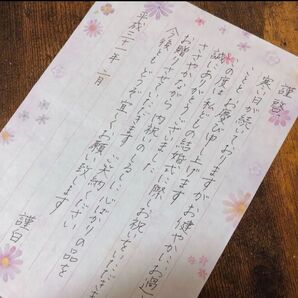 謹啓
寒い日が続いておりますがお健やかにお過
ことと お慶び申し上げます
この度は私どもの結婚式に際しお祝いをいただき
誠にありがとうございました
ささやかながら 内祝のしるしに 心ばかりの品を
お贈りさせていただきます ご笑納ください
今後とも どうぞ宜しくお願い致します
平成三十一年 二月
謹白